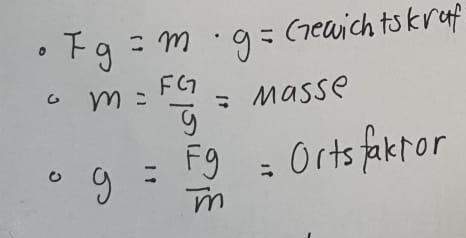 • Fg = m · g = Gewichtskraf
• m = FG/g = Masse
• g = Fg/m = Ortsfaktor